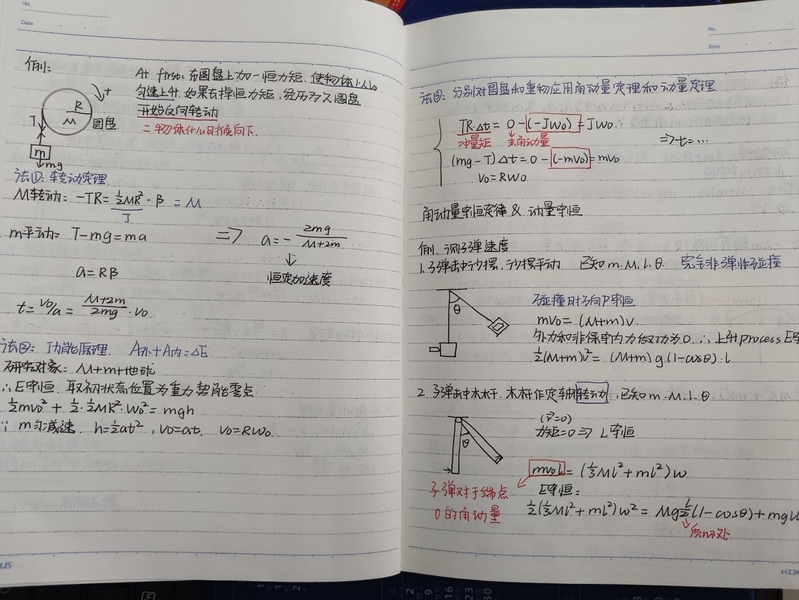 No.
Date
例:
At first: 在圆盘上加一恒力矩, 使物体以v₀
匀速上升, 如果去掉恒力矩, 经历多久圆盘
开始反向转动
= 物体什么时候向下.
R
M
圆盘
T
m
mg
法①: 转动定理
M转动: -TR = ½MR²·β = M
J
m平动: T-mg=ma ⇒ a = - 2mg/(M+2m)
恒定加速度
a=Rβ
t = v₀/a = (M+2m)/2mg · v₀
法②: 功能原理. A外+A内=ΔE
研究对象: M+m+地球
∴E守恒, 取初状态位置为重力势能零点
½mv₀² + ½·½MR²·ω₀² = mgh
∵ m匀减速, h=½at², v₀=at, v₀=Rω₀.
No.
Date
法③: 分别对圆盘和重物应用角动量定理和动量定理
TR·Δt = 0-(-Jω₀) = Jω₀
冲量矩 末角动量
⇒t=...
(mg-T)Δt = 0-(-mv₀) = mv₀
v₀=Rω₀
角动量守恒定律 & 动量守恒
例. 测子弹速度
1. 子弹击中沙摆, 沙摆平动 已知m.M.l.θ 完全非弹性碰撞
θ
碰撞时方向P守恒
mv₀ = (M+m)v
外力和非保守内力做功为0, ∴上升process E守
½(M+m)² = (M+m)g(1-cosθ)·l
2. 子弹击中木杆, 木杆作定轴转动, 已知m.M.l.θ
θ
力矩=0 ⇒ L守恒
mv₀l = (⅓Ml²+ml²)ω
子弹对于端点
O的角动量
E守恒:
½(⅓Ml²+ml²)ω² = Mg½(1-cosθ)+mgl
质心处